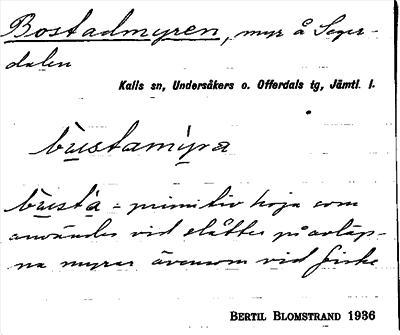 Bostadmyren, myr å Soger-
dalen
Kalls sn, Undersåkers o. Offerdals tg, Jämtl. l.
bustamyra
busta = primitiv koja som
användes vid slåtter på avläg-
na myrar ävensom vid fiske
BERTIL BLOMSTRAND 1936